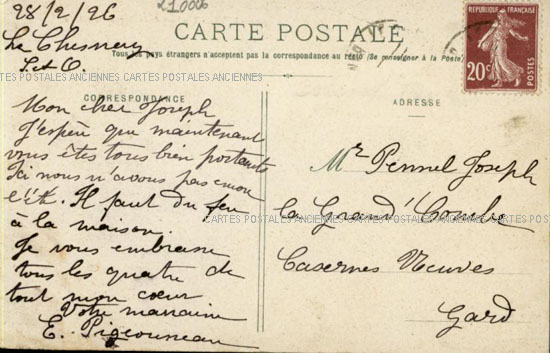 28/2/26
21.0006
Le Chesnay
S.et O.
CARTE POSTALE
Tous les pays étrangers n'acceptent pas la correspondance au recto (Se renseigner à la Poste)
RÉPUBLIQUE FRANÇAISE
20c
POSTES
CARTES POSTALES ANCIENNES CARTES POSTALES ANCIENNES
CORRESPONDANCE
Mon cher Joseph
J'espère que maintenant
vous êtes tous bien portants
Ici nous n'avons pas encore
l'été. Il faut du feu
à la maison.
Je vous embrasse
tous les quatre de
tout mon cœur
Votre marraine
E. Pigeonneau
ADRESSE
Mr Pennel Joseph
La Grand'Combe
CARTES POSTALES ANCIENNES CARTES POSTALES ANCIENNES
Casernes Neuves
Gard